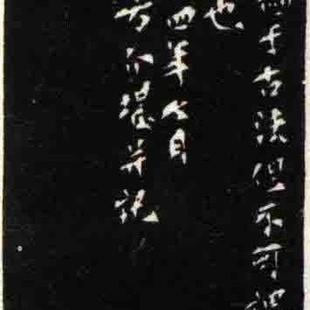 于古法但不可謂
也
四年八月
不堪并記